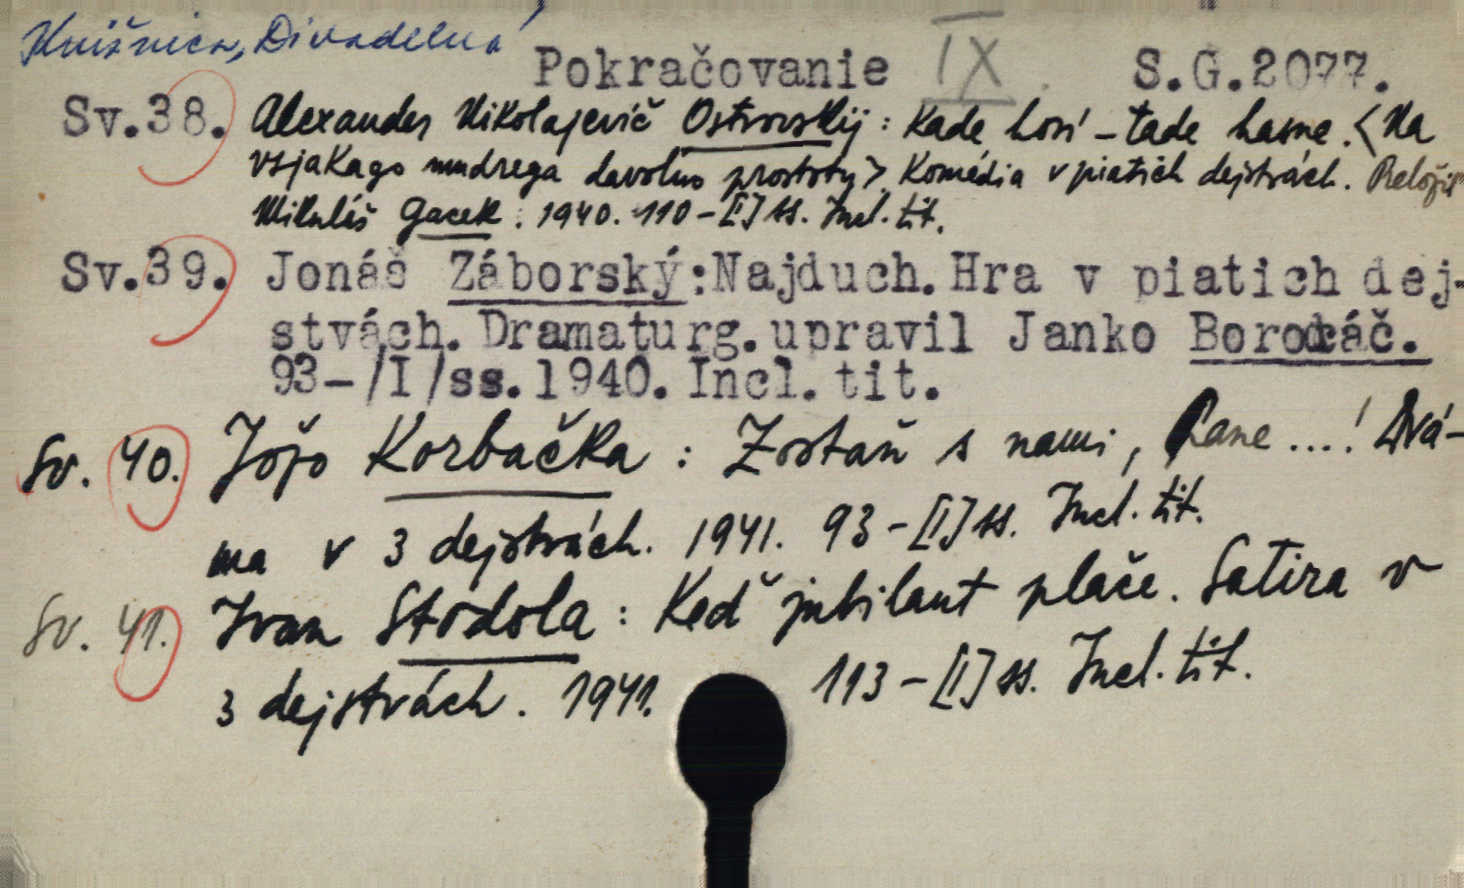 Knižnica, Divadelná
Pokračovanie IX S.G.2077.
Sv.38. Alexander Nikolajevič Ostrovskij: Kade horí – tade hasne. <Na
vsjakago mudreca davoľno prostoty>. Komédia v piatich dejstvách. Preložil
Mikuláš Gacek. 1940. 110-[I] ss. Incl. tit.
Sv.39. Jonáš Záborský: Najduch. Hra v piatich dej-
stvách. Dramaturg. upravil Janko Borodáč.
93-/I/ss. 1940. Incl. tit.
Sv. 40. Jožo Korbačka: Zostaň s nami, Pane...! Drá-
ma v 3 dejstvách. 1941. 93-[I] ss. Incl. tit.
Sv. 41. Ivan Stodola: Keď jubilant plače. Satira v
3 dejstvách. 1941. 113-[I] ss. Incl. tit.